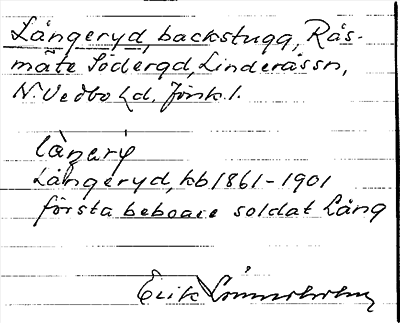 Långeryd, backstuga, Rås-
måte Södergd, Linderåssn,
N. Vedbo hd. Jönk. l.
làŋarý
Långeryd, kb 1861-1901
första beboare soldat Lång
Erik